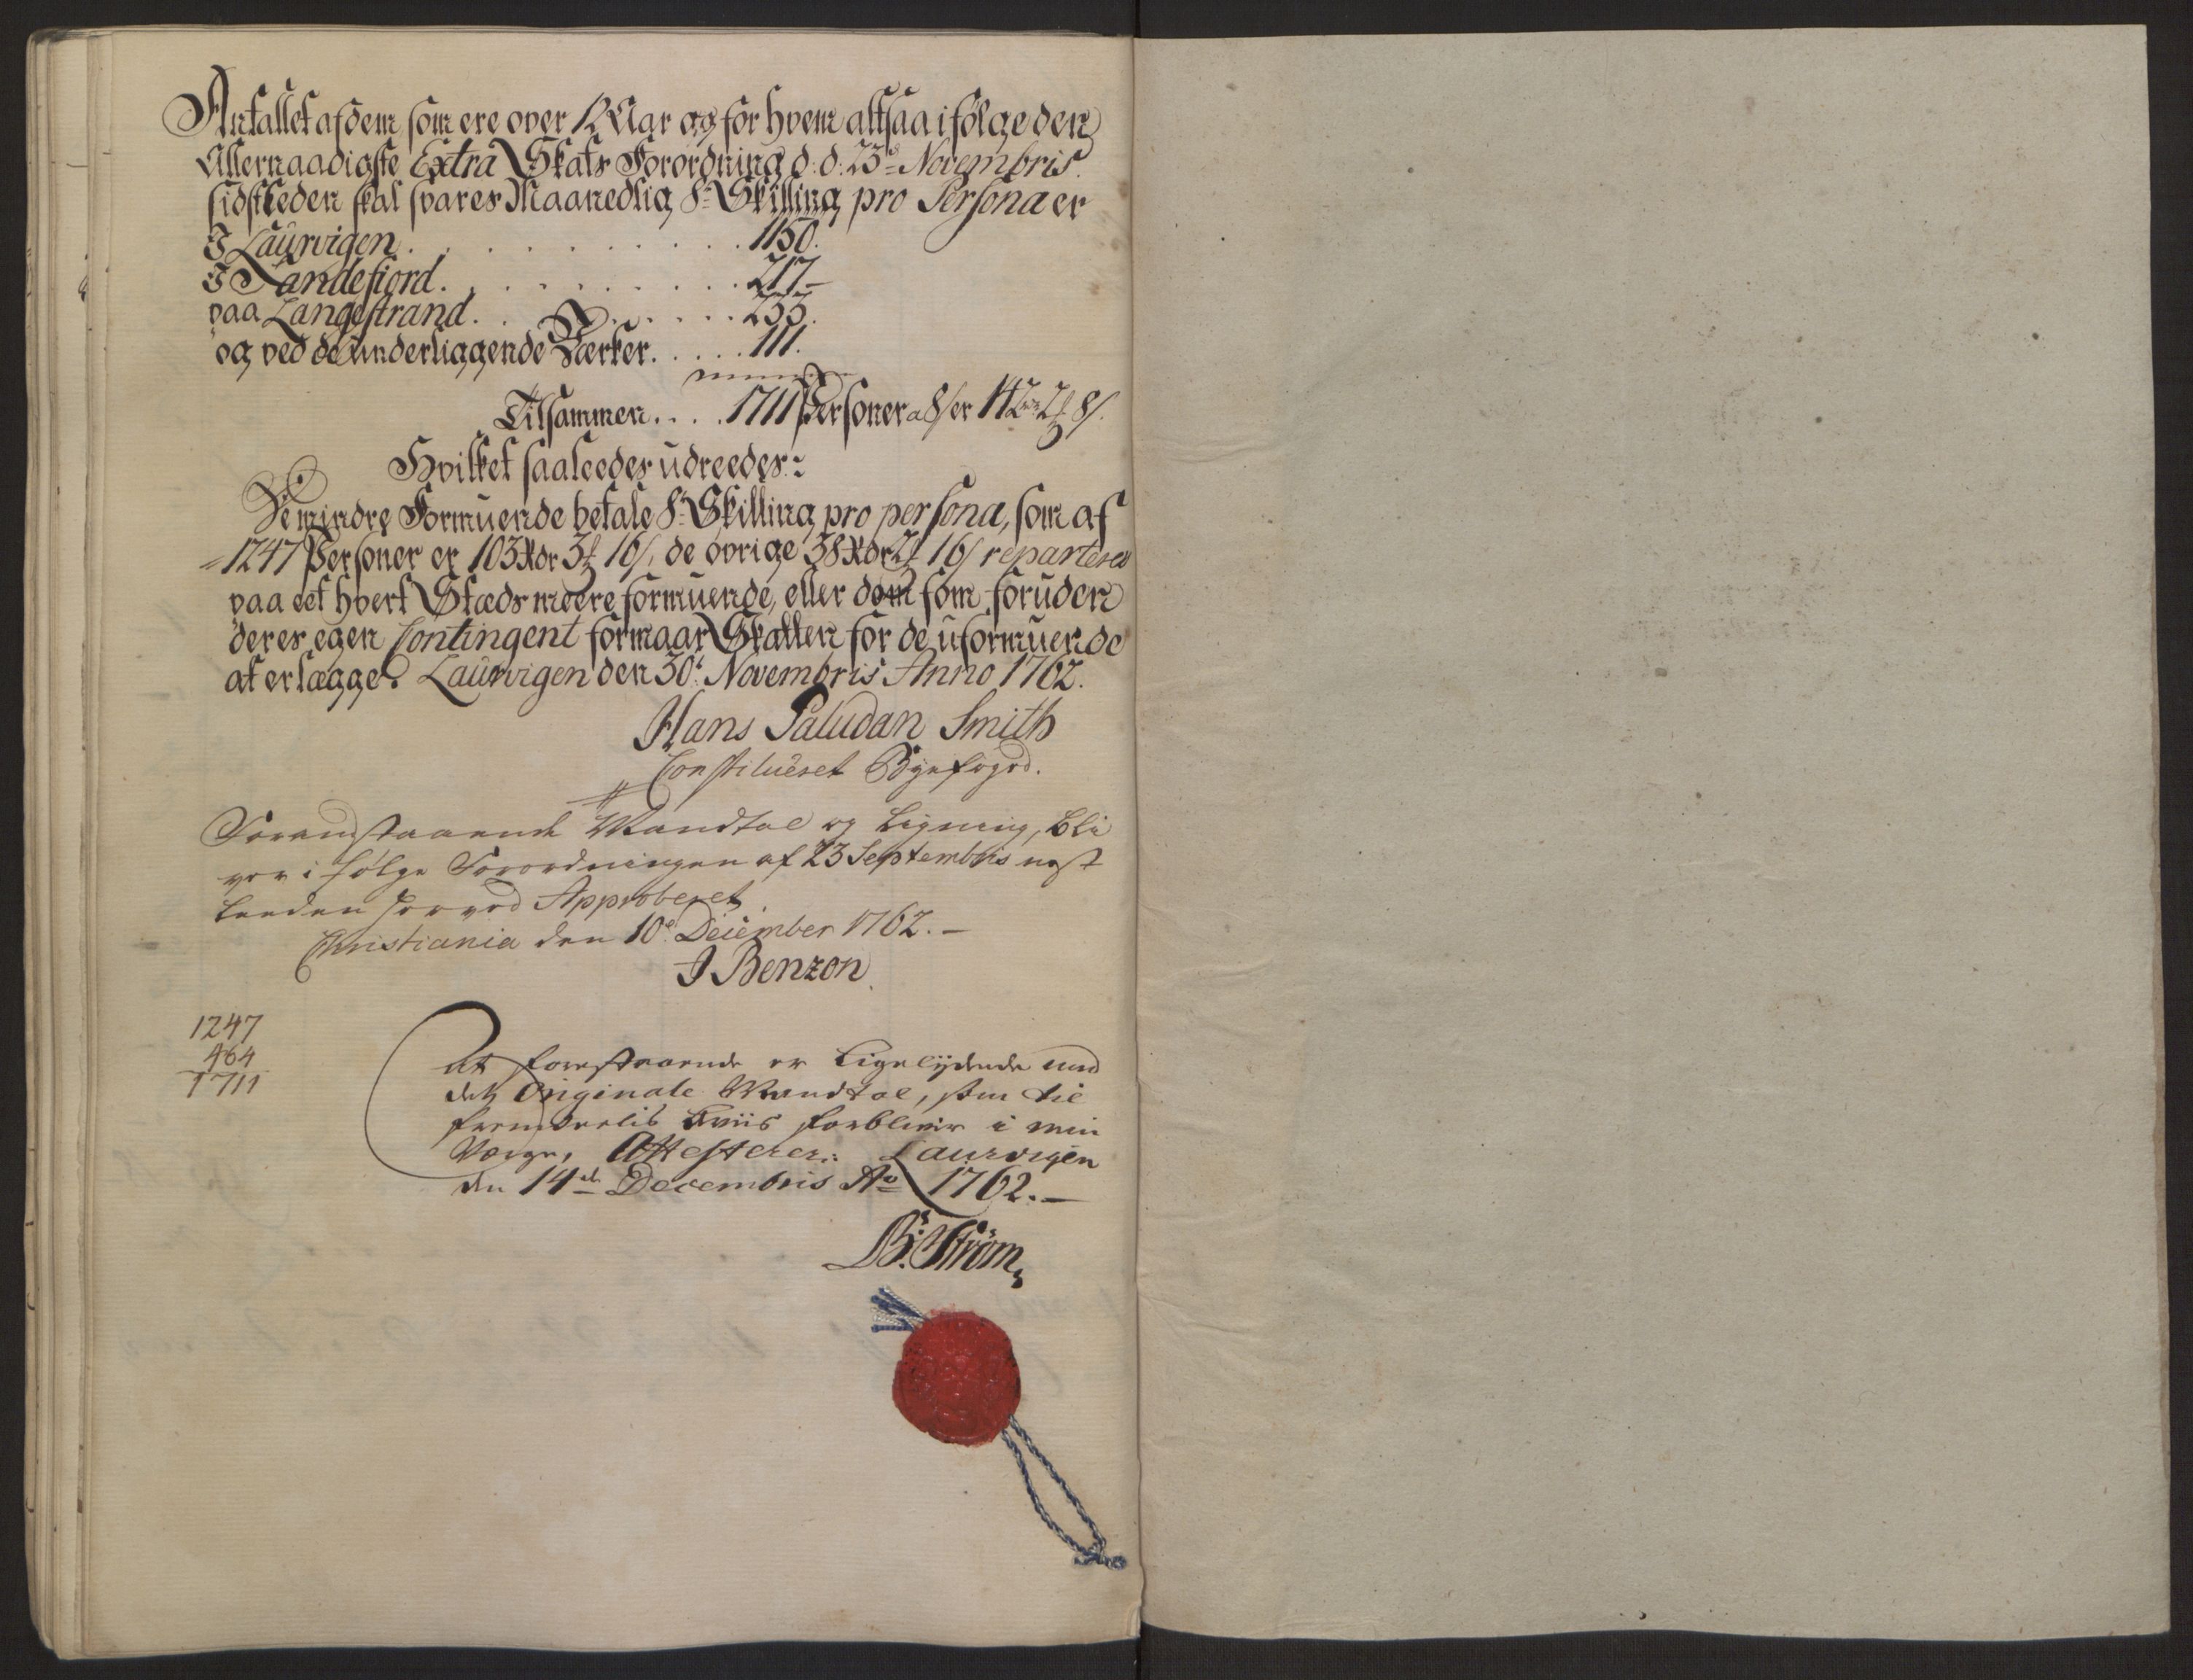 Antallet af dem som ere over 12 Aar og for hvem altsaa i følge den
Allernaadigste Extra Skats Forordning d: d: 23de Novembris
sidstleeden skal svares Maanedlig 8te Skilling pro Persona er
I Laurvigen . . . . . . . . . . 1150.
I Sandefiord . . . . . . . . . . 217 –
paa Langestrand . . . . . . . . 233.
og ved de underliggende Værker . . . . . 111.
Tilsammen . . . . 1711 Personer a 8 s er 142 rdr 2 # 8 s.
Hvilket saaleedes udreedes:
De mindre Formuende betale 8te Skilling pro persona, som af
1247 Personer er 103 Rdr 3 # 16 s, de øvrige 38 Rdr 2 # 16 s reparteres
paa eet hvert Stæds meere formuende, eller dem som foruden
deres egen Contingent formaar Skatten for de uformuende
at erlægge. Laurvigen den 30t Novembris Anno 1762.
Hans Paludan Smith
Constitueret Byefoged.
Foranstaaende Mandtal og Ligning, bli
ver i følge Forordningen af 23 Septembris nest
leeden herved Approberet
Christiania den 10de December 1762. –
J Benzon
1247
464
1711
At forestaaende er Ligelydende med
det Originale Mandtal, som til
fremdeelis Beviis forbliver i min
Værge, Attesterer: Laurvigen
den 14de Decembris Ao 1762. –
B: Strøm